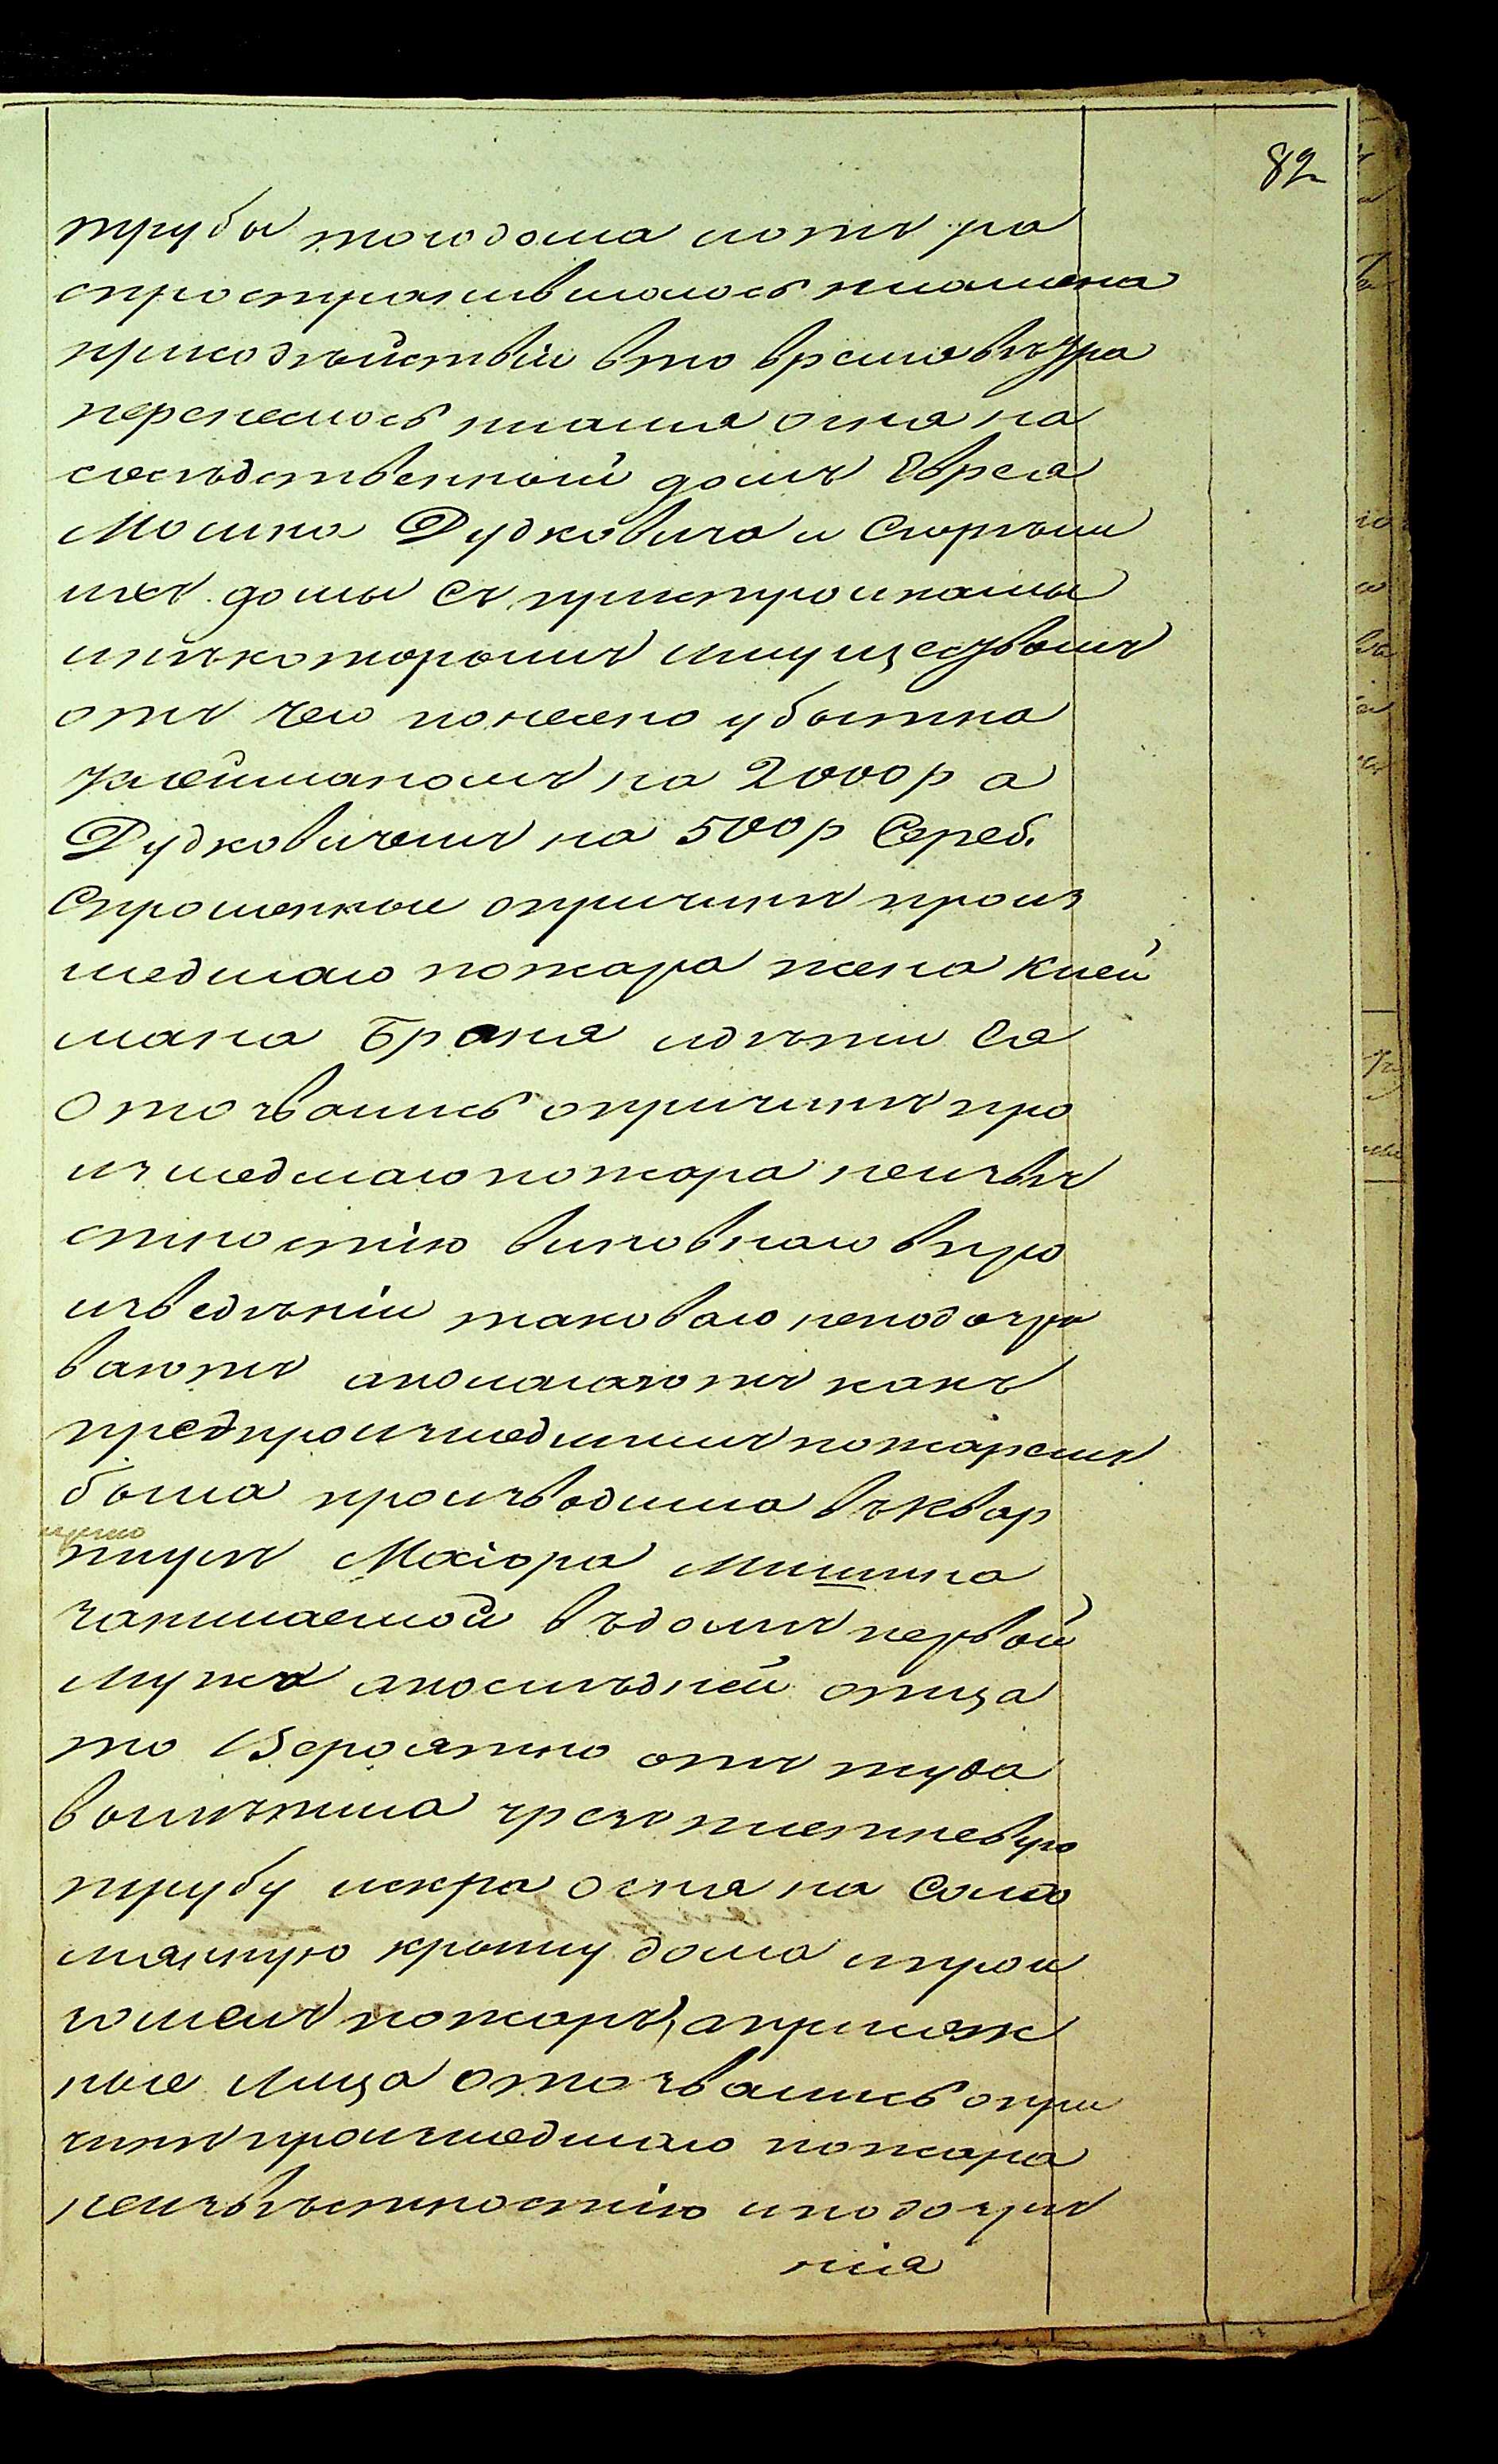 82
трубы тогодома иотъ ра
спространившагось пламена
присодѣйствіи вто время вѣтра
перенеслось пламя огня на
сосѣдственный домъ Еврея
Мошка Дудковича и Сгорѣли
ихъ домы Съ пристройками
инѣкоторымъ имуществомъ
отъ чего понесено убытка
Клейманомъ на 2000р а
Дудковичемъ на 500р Сереб.
Спрошенные опричинѣ произ
шедшаго пожара жена Клей
мана Браня идѣти Ея
Отозвались опричинѣ про
изшедшаго пожара неизвѣ
стностію виновнаго впро
изведѣніи таковаго неподозрѣ
ваютъ аполагаютъ какъ
предпроизшедшимъ пожаремъ
была производима въквар
тирѣ Маіора Мишина
занимаемой въдомѣ первой
мужа апослѣдней отца
то Вероятно отъ туда
вылѣтила чрезъ плетневую
трубу искра огня на Соло
мянную крышу дома ипрои
зошелъ пожаръ, априкож
ные лица отозвались опри
чинѣ произшедшаго пожара
неизвѣстностію иподозрѣ
нія